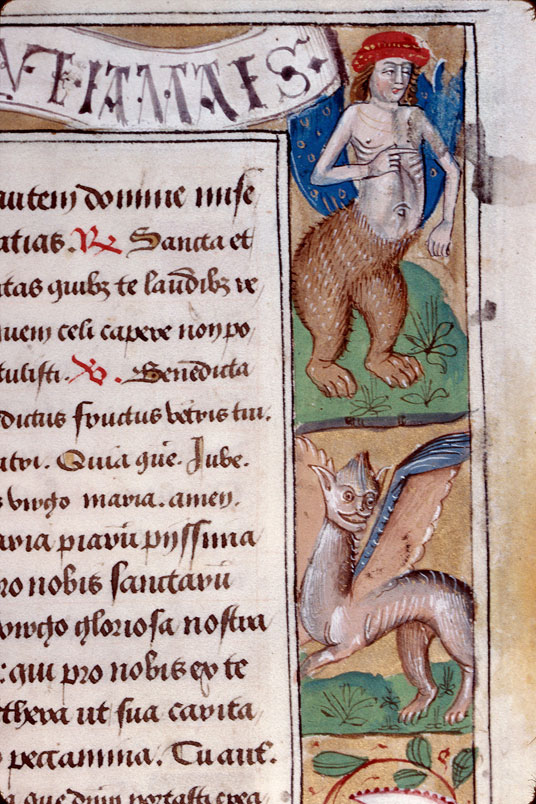 autem domine mise
atias. R Sancta et
itas quibz te laudibz re
quem celi capere non po
tulisti. V. Benedicta
dictus fructus vetris tui.
atri. Quia que. Jube.
s virgo maria. amen.
aria piarū pijssima
ro nobis sanctarū
virgo gloriosa nostra
qui pro nobis ex te
ethera ut sua carita
peccamina. Tu aut.